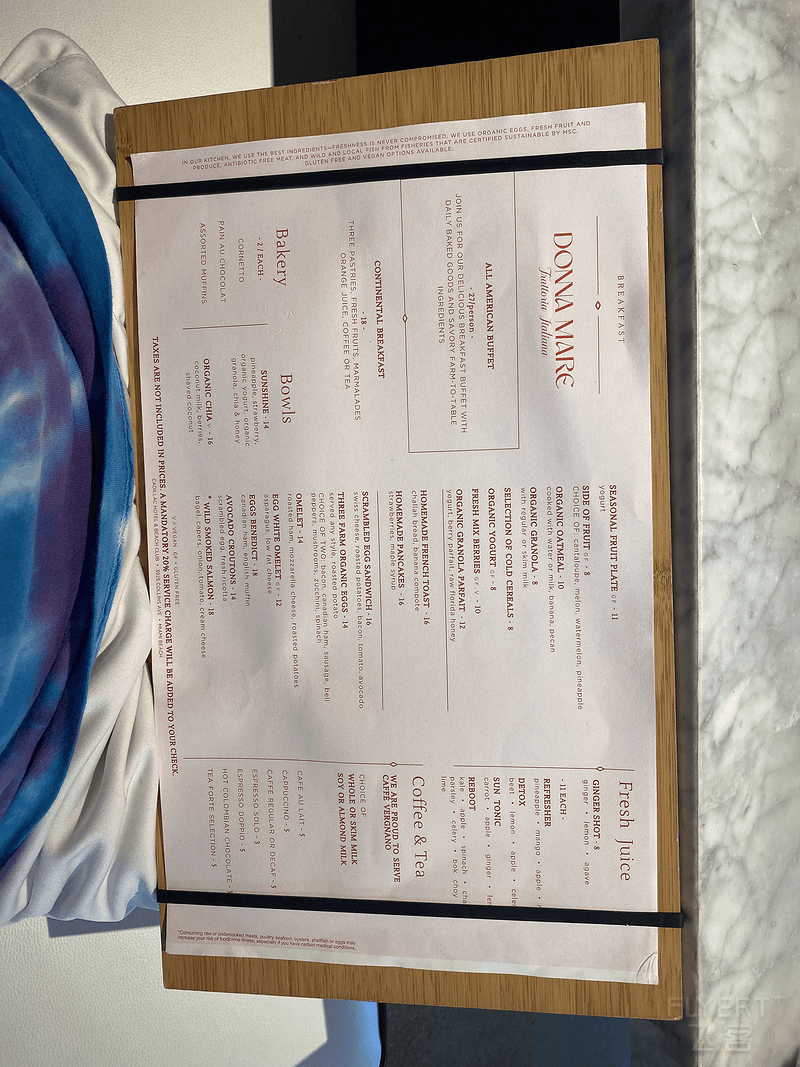 IN OUR KITCHEN, WE USE THE BEST INGREDIENTS—FRESHNESS IS NEVER COMPROMISED. WE USE ORGANIC EGGS, FRESH FRUIT AND
PRODUCE, ANTIBIOTIC FREE MEAT, AND WILD AND LOCAL FISH FROM FISHERIES THAT ARE CERTIFIED SUSTAINABLE BY MSC.
GLUTEN FREE AND VEGAN OPTIONS AVAILABLE.
BREAKFAST
DONNA MARE
Trattoria Italiana
ALL AMERICAN BUFFET
- 27/person -
JOIN US FOR OUR DELICIOUS BREAKFAST BUFFET WITH
DAILY BAKED GOODS AND SAVORY FARM-TO-TABLE
INGREDIENTS
CONTINENTAL BREAKFAST
- 18 -
THREE PASTRIES, FRESH FRUITS, MARMALADES
ORANGE JUICE, COFFEE OR TEA
Bakery
- 7 / EACH -
CORNETTO
PAIN AU CHOCOLAT
ASSORTED MUFFINS
Bowls
SUNSHINE - 14
pineapple, strawberry,
organic yogurt, organic
granola, chia & honey
ORGANIC CHIA V - 16
coconut milk, berries,
shaved coconut
SEASONAL FRUIT PLATE GF - 11
yogurt
SIDE OF FRUIT GF - 8
CHOICE OF: cantaloupe, melon, watermelon, pineapple
ORGANIC OATMEAL - 10
cooked with water or milk, banana, pecan
ORGANIC GRANOLA - 8
with regular or skim milk
SELECTION OF COLD CEREALS - 8
ORGANIC YOGURT GF - 8
FRESH MIX BERRIES GF V - 10
ORGANIC GRANOLA PARFAIT - 12
yogurt, berry parfait, raw florida honey
HOMEMADE FRENCH TOAST - 16
challah bread, banana compote
HOMEMADE PANCAKES - 16
strawberries, maple syrup
SCRAMBLED EGG SANDWICH - 16
swiss cheese, roasted potatoes, bacon, tomato, avocado
THREE FARM ORGANIC EGGS - 14
served any style, roasted potato
CHOICE OF TWO: bacon, canadian ham, sausage, bell
peppers, mushrooms, zucchini, spinach
OMELET - 14
roasted ham, mozzarella cheese, roasted potatoes
EGG WHITE OMELET GF - 12
asparagus, low fat cheese
EGGS BENEDICT - 18
canadian ham, english muffin
AVOCADO CROUTONS - 14
scrambled egg, fresh ricotta
* WILD SMOKED SALMON - 18
bagel, capers, onion, tomato, cream cheese
Fresh Juice
GINGER SHOT - 8
ginger • lemon • agave
- 11 EACH -
REFRESHER
pineapple • mango • apple •
DETOX
beet • lemon • apple •
SUN TONIC
carrot • apple • ginger •
REBOOT
kale • apple • spinach •
parsley • celery • bok choy
lime
Coffee & Tea
WE ARE PROUD TO SERVE
CAFFÈ VERGNANO
CHOICE OF
WHOLE OR SKIM MILK
SOY OR ALMOND MILK
CAFÉ AU LAIT - 5
CAPPUCCINO - 5
CAFFE REGULAR OR DECAF - 5
ESPRESSO SOLO - 5
ESPRESSO DOPPIO - 5
HOT COLOMBIAN CHOCOLATE - 5
TEA FORTE SELECTION - 5
V = VEGAN GF = GLUTEN FREE
TAXES ARE NOT INCLUDED IN PRICES. A MANDATORY 20% SERVICE CHARGE WILL BE ADDED TO YOUR CHECK.
CADILLAC HOTEL & BEACH CLUB • 3925 COLLINS AVE • MIAMI BEACH
*Consuming raw or undercooked meats, poultry, seafood, oysters, shellfish or eggs may
increase your risk of foodborne illness, especially if you have certain medical conditions.
FLYERT
飞客